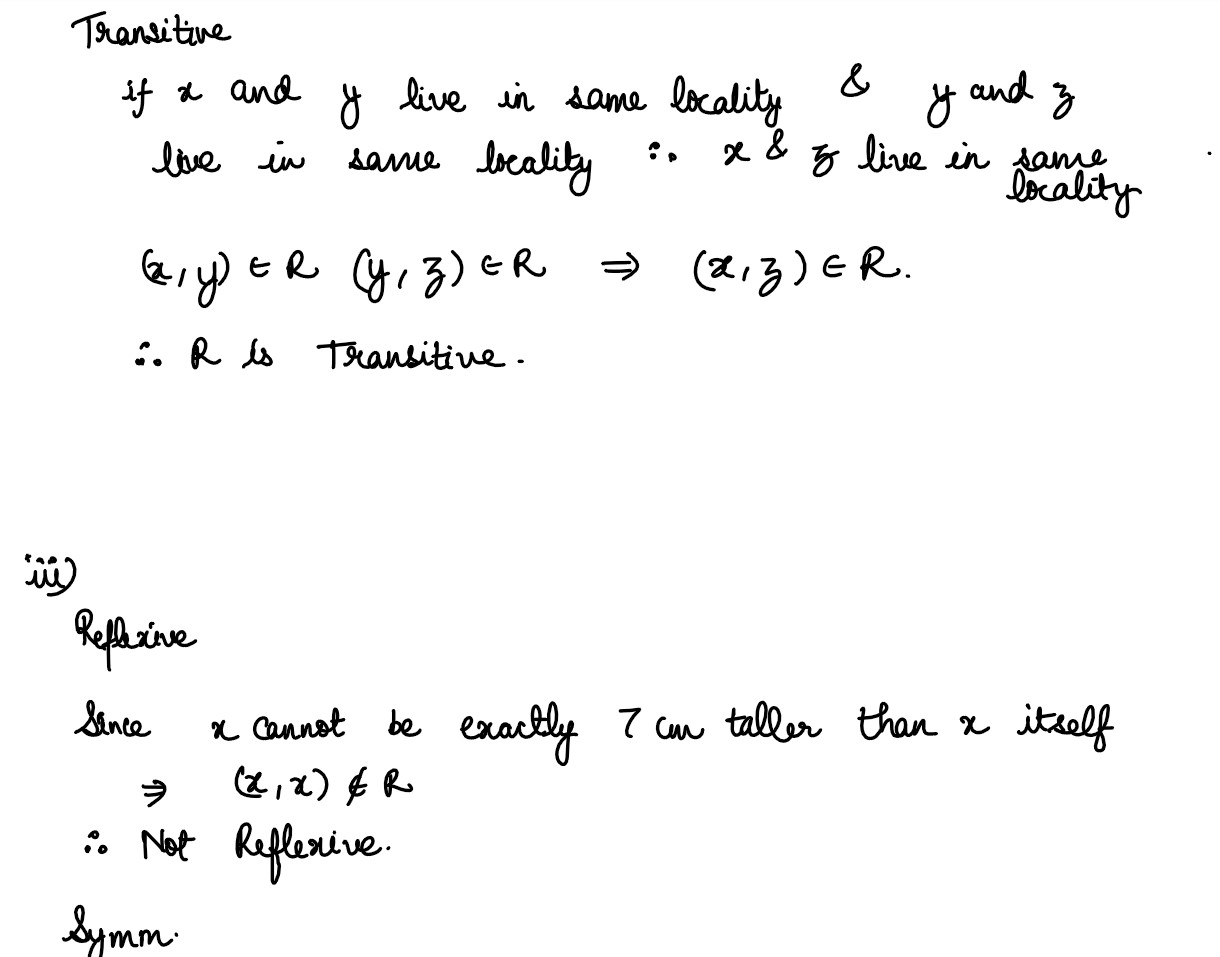 Transitive
if x and y live in same locality & y and z
live in same locality ∴ x & z live in same
locality
(x, y) ∈ R (y, z) ∈ R ⇒ (x, z) ∈ R.
∴ R is Transitive.
iii)
Reflexive
Since x cannot be exactly 7 cm taller than x itself
⇒ (x, x) ∉ R
∴ Not Reflexive.
Symm.